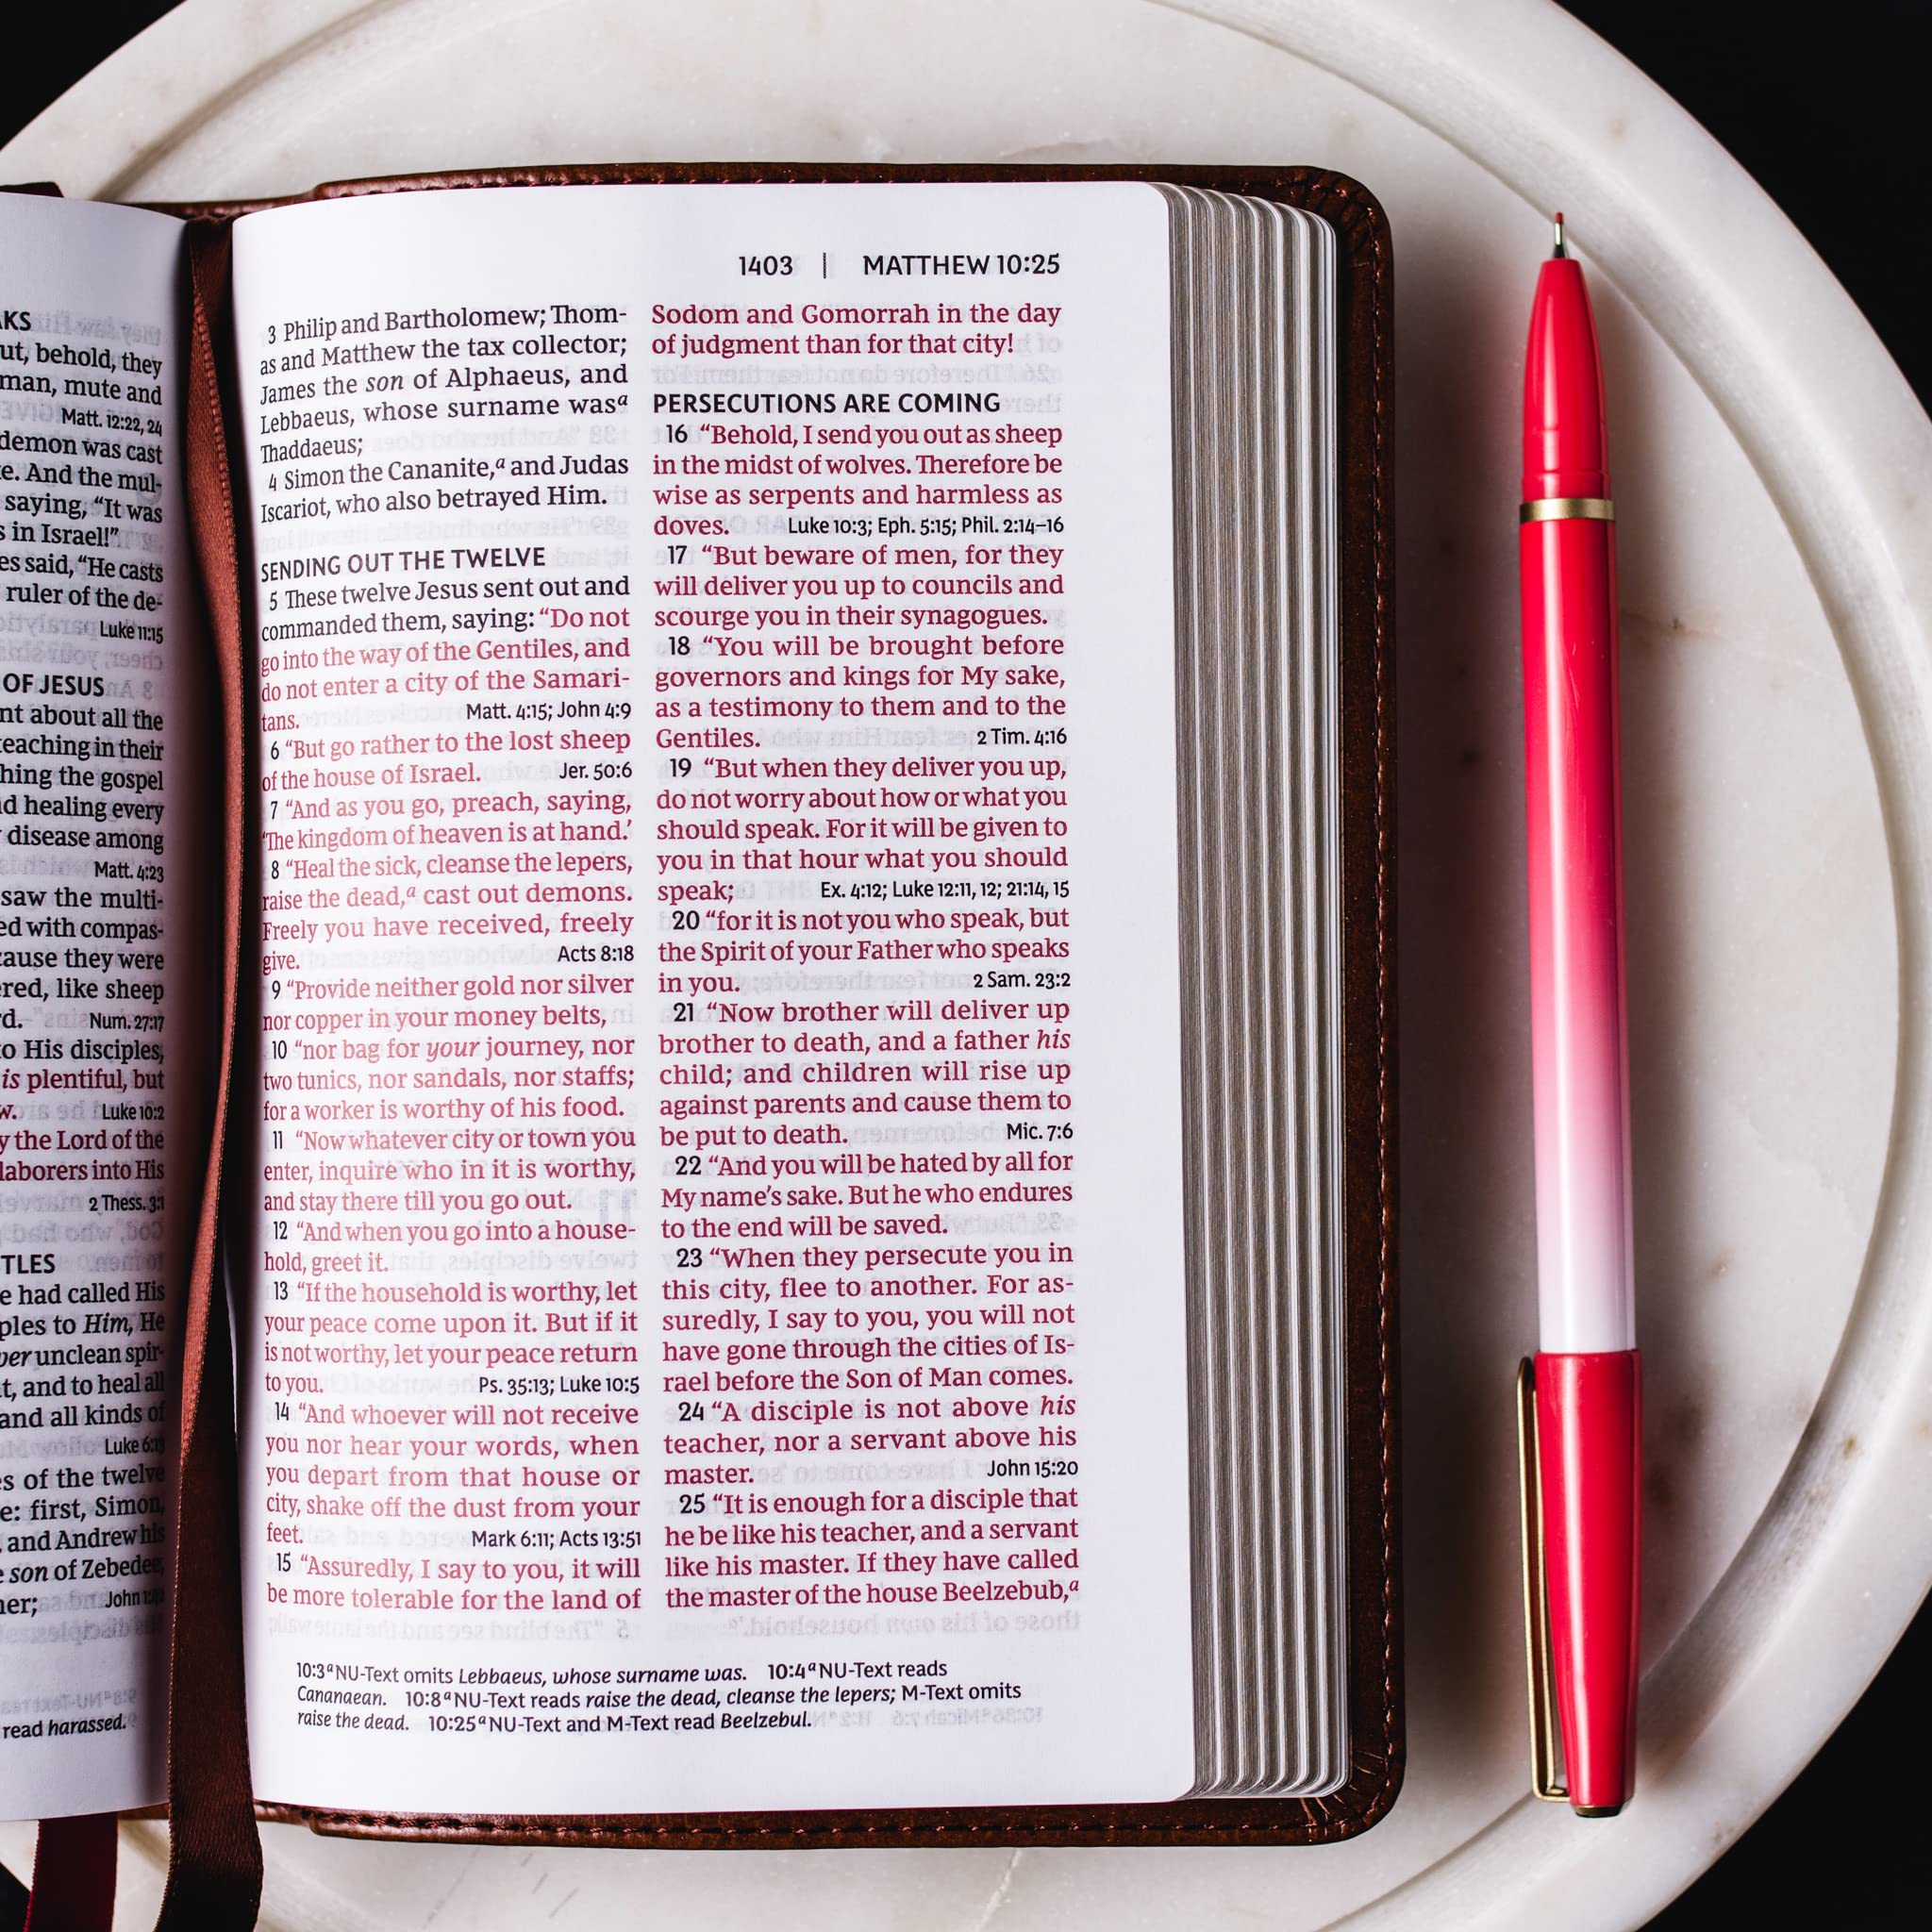 AKS
ut, behold, they
man, mute and
Matt. 12:22, 24
demon was cast
e. And the mul-
saying, “It was
s in Israel!”
es said, “He casts
ruler of the de-
Luke 11:15
OF JESUS
nt about all the
teaching in their
hing the gospel
d healing every
disease among
Matt. 4:23
saw the multi-
ed with compas-
cause they were
ered, like sheep
d. Num. 27:17
o His disciples,
is plentiful, but
w. Luke 10:2
y the Lord of the
laborers into His
2 Thess. 3:1
TLES
e had called His
ples to Him, He
ver unclean spir-
t, and to heal all
and all kinds of
Luke 6:13
s of the twelve
e: first, Simon,
and Andrew his
son of Zebedee,
her; John
read harassed.
1403 | MATTHEW 10:25
3 Philip and Bartholomew; Thom-
as and Matthew the tax collector;
James the son of Alphaeus, and
Lebbaeus, whose surname wasᵃ
Thaddaeus;
4 Simon the Cananite,ᵃ and Judas
Iscariot, who also betrayed Him.
SENDING OUT THE TWELVE
5 These twelve Jesus sent out and
commanded them, saying: “Do not
go into the way of the Gentiles, and
do not enter a city of the Samari-
tans. Matt. 4:15; John 4:9
6 “But go rather to the lost sheep
of the house of Israel. Jer. 50:6
7 “And as you go, preach, saying,
‘The kingdom of heaven is at hand.’
8 “Heal the sick, cleanse the lepers,
raise the dead,ᵃ cast out demons.
Freely you have received, freely
give. Acts 8:18
9 “Provide neither gold nor silver
nor copper in your money belts,
10 “nor bag for your journey, nor
two tunics, nor sandals, nor staffs;
for a worker is worthy of his food.
11 “Now whatever city or town you
enter, inquire who in it is worthy,
and stay there till you go out.
12 “And when you go into a house-
hold, greet it.
13 “If the household is worthy, let
your peace come upon it. But if it
is not worthy, let your peace return
to you. Ps. 35:13; Luke 10:5
14 “And whoever will not receive
you nor hear your words, when
you depart from that house or
city, shake off the dust from your
feet. Mark 6:11; Acts 13:51
15 “Assuredly, I say to you, it will
be more tolerable for the land of
Sodom and Gomorrah in the day
of judgment than for that city!
PERSECUTIONS ARE COMING
16 “Behold, I send you out as sheep
in the midst of wolves. Therefore be
wise as serpents and harmless as
doves. Luke 10:3; Eph. 5:15; Phil. 2:14–16
17 “But beware of men, for they
will deliver you up to councils and
scourge you in their synagogues.
18 “You will be brought before
governors and kings for My sake,
as a testimony to them and to the
Gentiles. 2 Tim. 4:16
19 “But when they deliver you up,
do not worry about how or what you
should speak. For it will be given to
you in that hour what you should
speak; Ex. 4:12; Luke 12:11, 12; 21:14, 15
20 “for it is not you who speak, but
the Spirit of your Father who speaks
in you. 2 Sam. 23:2
21 “Now brother will deliver up
brother to death, and a father his
child; and children will rise up
against parents and cause them to
be put to death. Mic. 7:6
22 “And you will be hated by all for
My name’s sake. But he who endures
to the end will be saved.
23 “When they persecute you in
this city, flee to another. For as-
suredly, I say to you, you will not
have gone through the cities of Is-
rael before the Son of Man comes.
24 “A disciple is not above his
teacher, nor a servant above his
master. John 15:20
25 “It is enough for a disciple that
he be like his teacher, and a servant
like his master. If they have called
the master of the house Beelzebub,ᵃ
10:3ᵃ NU-Text omits Lebbaeus, whose surname was. 10:4ᵃ NU-Text reads
Cananaean. 10:8ᵃ NU-Text reads raise the dead, cleanse the lepers; M-Text omits
raise the dead. 10:25ᵃ NU-Text and M-Text read Beelzebul.